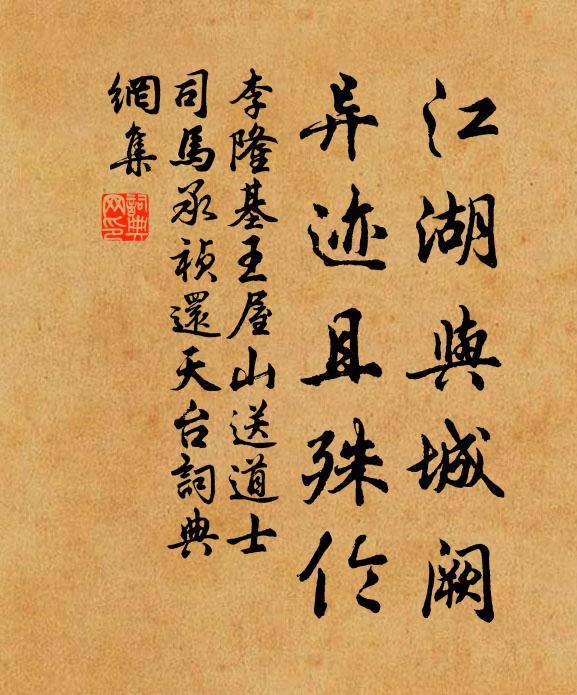 江湖與城闕
异迹且殊伦
李隆基王屋山送道士
司馬承禎還天台詞典
網集
詞典网印